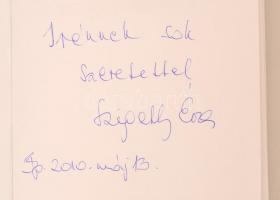 Irénnek sok
szeretettel
Szepeth Éva
Bp. 2010. máj 13.